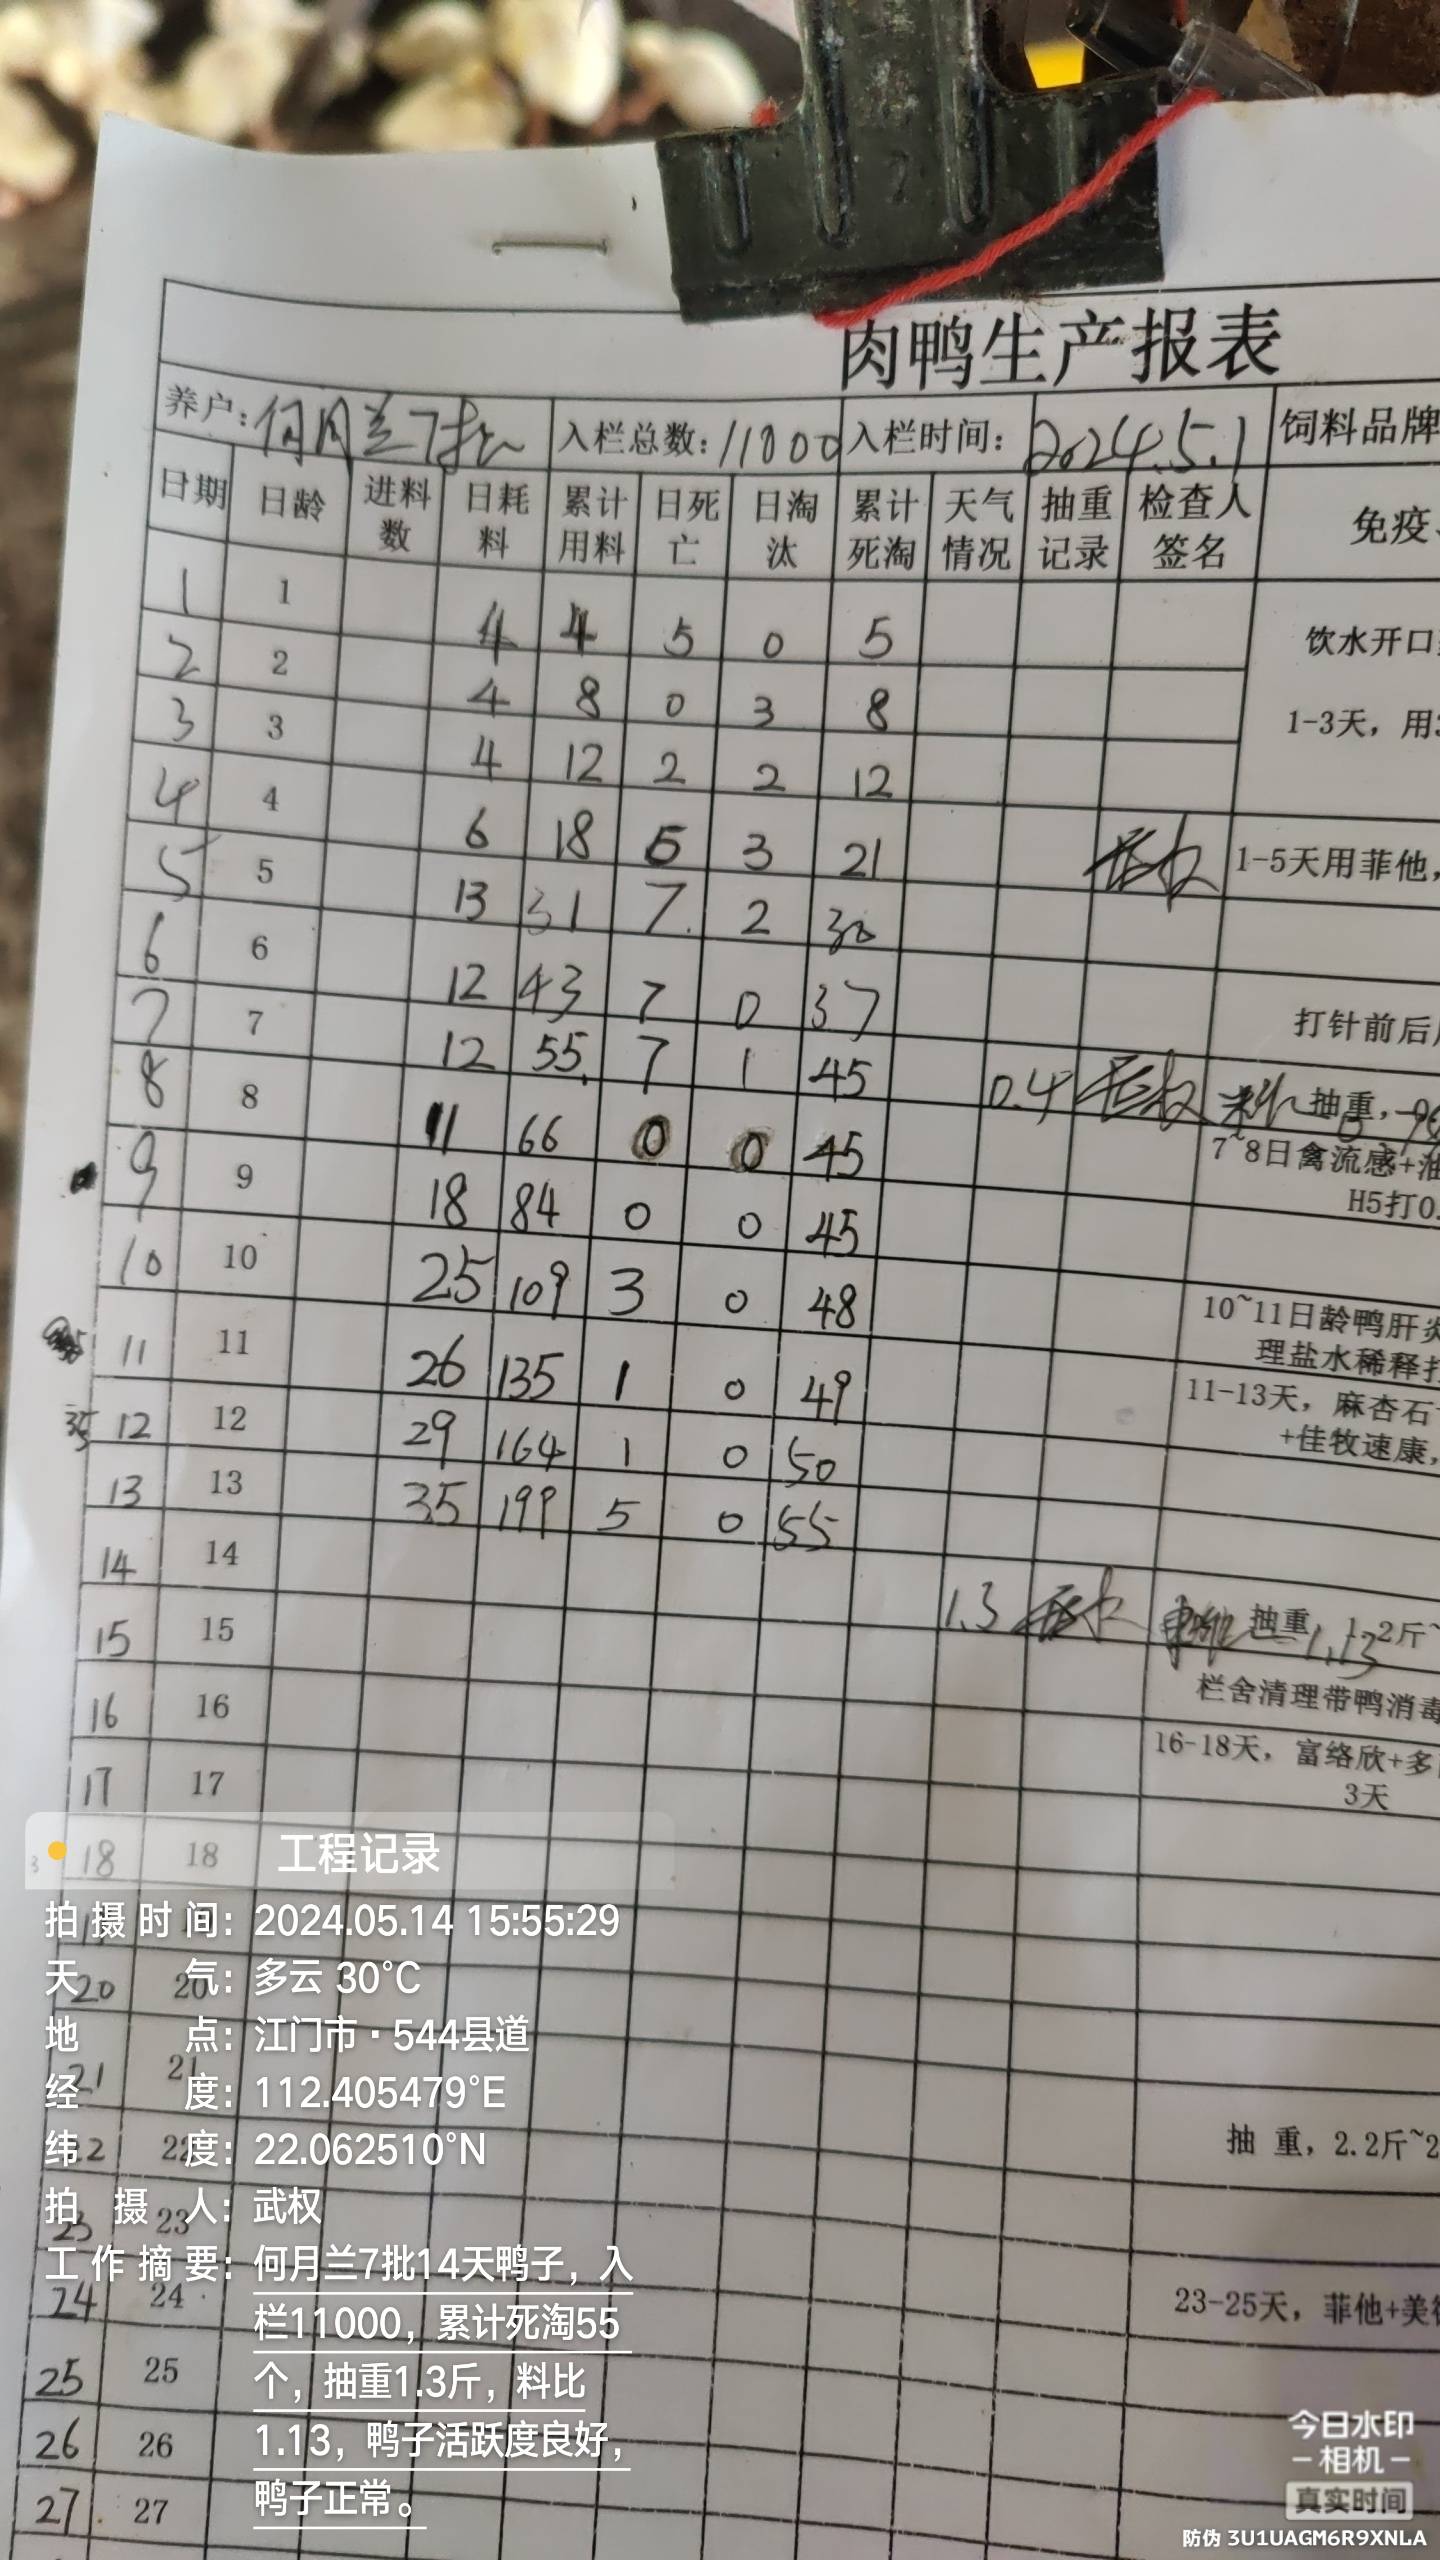 肉鸭生产报表
养户：何月兰7批 入栏总数：11000 入栏时间：2024.5.1 饲料品牌
日期 日龄 进料数 日耗料 累计用料 日死亡 日淘汰 累计死淘 天气情况 抽重记录 检查人签名 免疫
1 1 4 4 5 0 5 饮水开口
2 2 4 8 0 3 8 1-3天，用
3 3 4 12 2 2 12
4 4 6 18 6 3 21 武权 1-5天用菲他，
5 5 13 31 7 2 30
6 6 12 43 7 0 37 打针前后
7 7 12 55 7 1 45 0.4 武权 料比 抽重，
8 8 11 66 0 0 45 7~8日禽流感+油
H5打0.
9 9 18 84 0 0 45
10 10 25 109 3 0 48 10~11日龄鸭肝炎
理盐水稀释打
11 11 26 135 1 0 49 11-13天，麻杏石
+佳牧速康，
35 12 12 29 164 1 0 50
13 13 35 199 5 0 55
14 14 1.3 武权 料比 抽重，1.2斤~
1.13
15 15 栏舍清理带鸭消毒
16 16 16-18天，富络欣+多
3天
17 17
18 18
工程记录
拍摄时间：2024.05.14 15:55:29
天气：多云 30°C
20 20
地点：江门市·544县道
21 21
经度：112.405479°E
22 22 抽 重，2.2斤~2
纬度：22.062510°N
23 23
拍摄人：武权
24 24 23-25天，菲他+美
工作摘要：何月兰7批14天鸭子，入
栏11000，累计死淘55
个，抽重1.3斤，料比
1.13，鸭子活跃度良好，
鸭子正常。
25 25
26 26
27 27
今日水印
相机
真实时间
防伪 3U1UAGM6R9XNLA